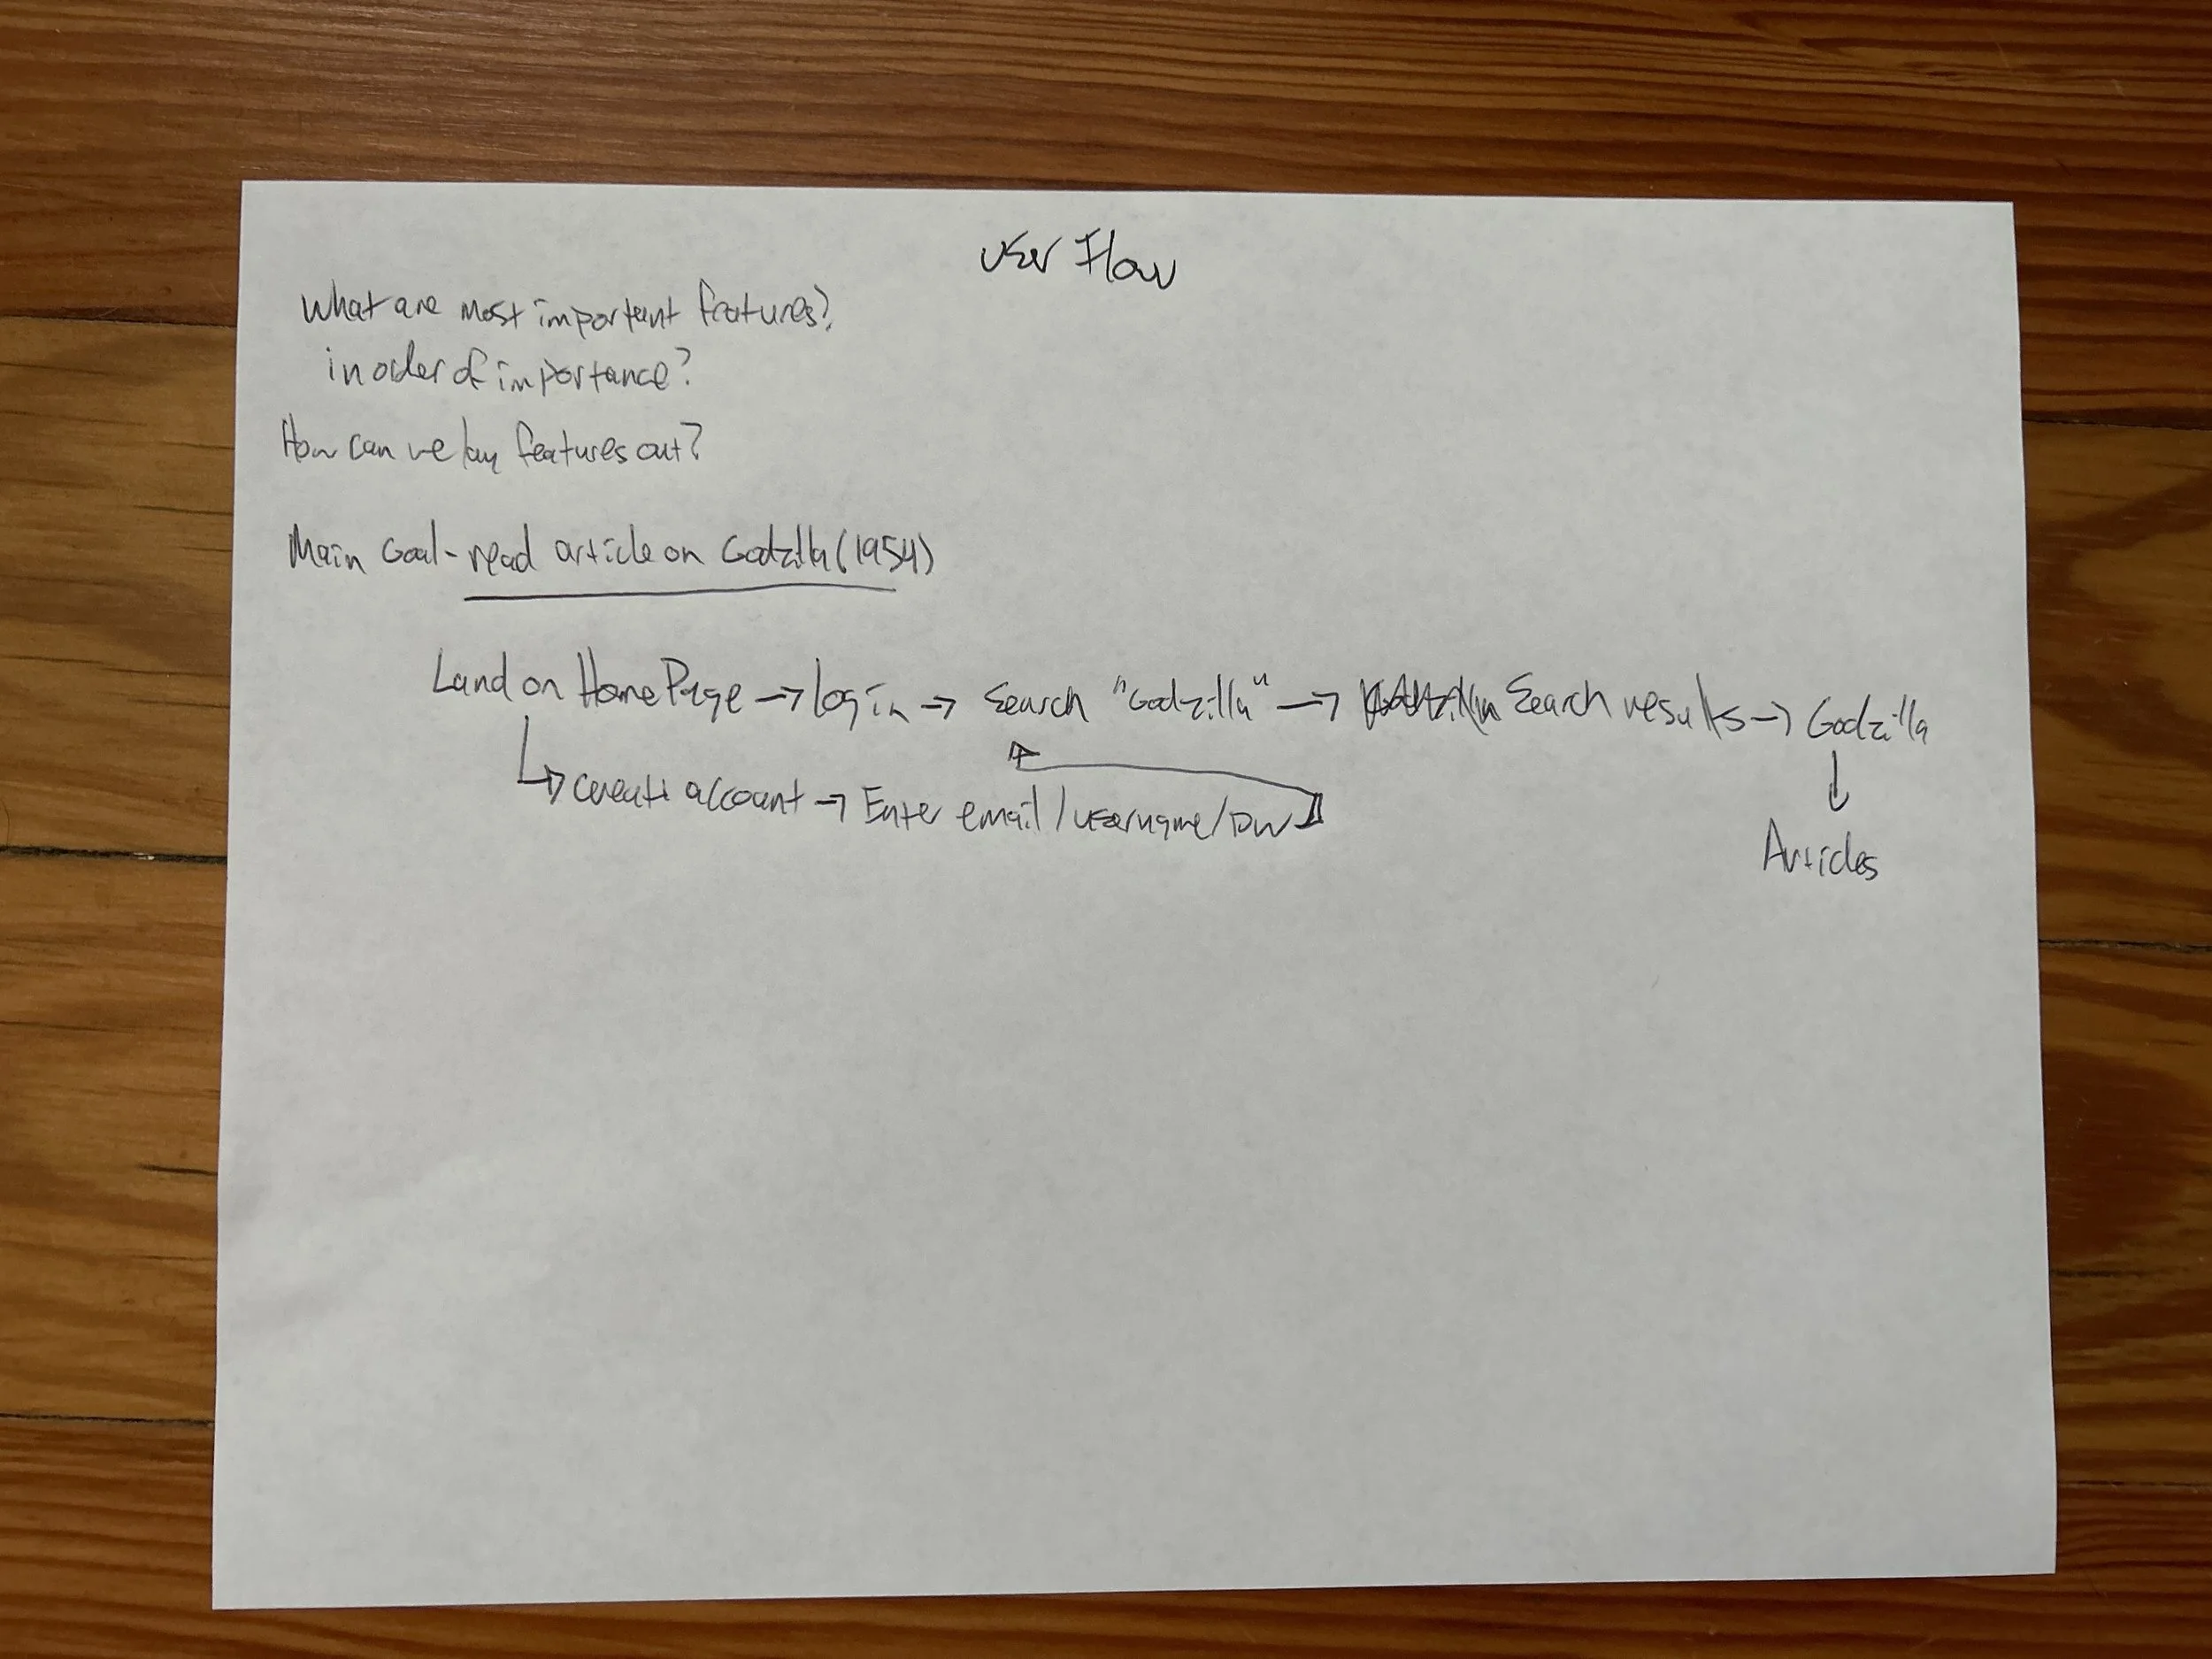 User Flow
What are most important features?
in order of importance?
How can we lay features out?
Main Goal - read article on Godzilla (1954)
Land on Home Page → login → Search "Godzilla" → Search results → Godzilla
↳ create account → Enter email/username/pw
↓
Articles